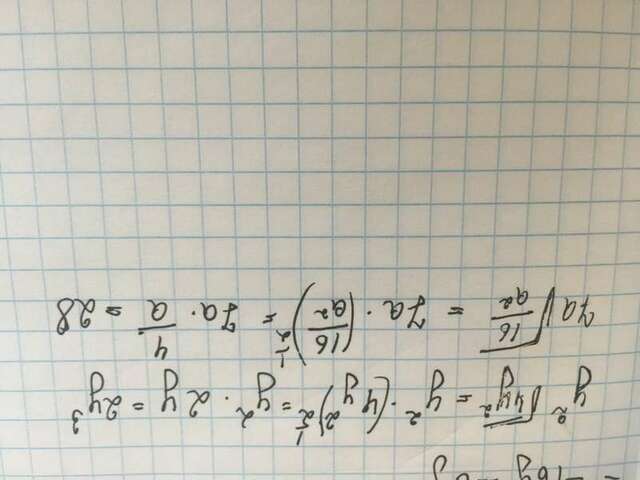 y²√4y² = y² · (4y²)^½ = y² · 2y = 2y³
7a√16/a² = 7a · (16/a²)^½ = 7a · 4/a = 28